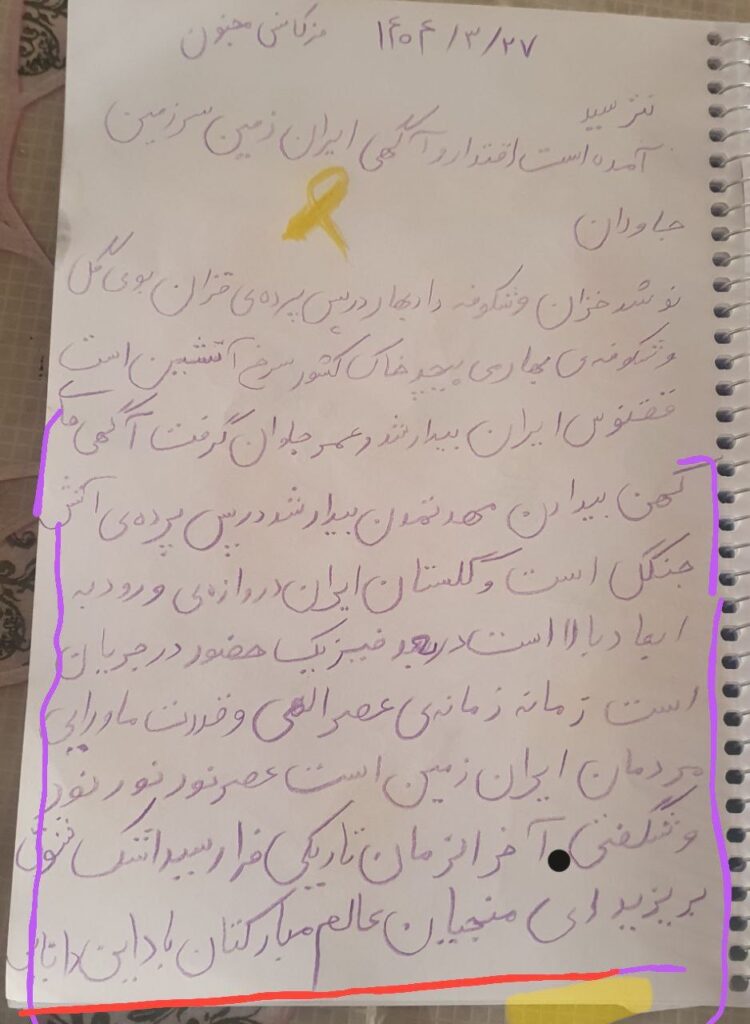 ۱۴۰۴/۳/۲۷ مژگانی مجنون
نترسید
آمده است اقتدار و آگهی ایران زمین سرزمین
جاودان
نو شد خزان و شکوفه داد بهار در پس پرده‌ی خزان بوی گل
و شکوفه‌ی بهاری پیچید خاک کشور سرخ آتشین است
ققنوس ایران بیدار شد و عمر جاودان گرفت آگهی
کهن بیدارن مهد تمدن بیدار شد در پس پرده‌ی آتش
جنگل است و گلستان ایران دروازه‌ی ورود به
ابعاد بالا است در بعد فیزیک حضور در جریان
است زمانه زمانه‌ی عصر الهی و قدرت ماورایی
مردمان ایران زمین است عصر نور نور نور
و شگفتی آخرالزمان تاریکی فرا رسید اشک شوق
بریزید ای منجیان عالم مبارکتان باد این دانایی